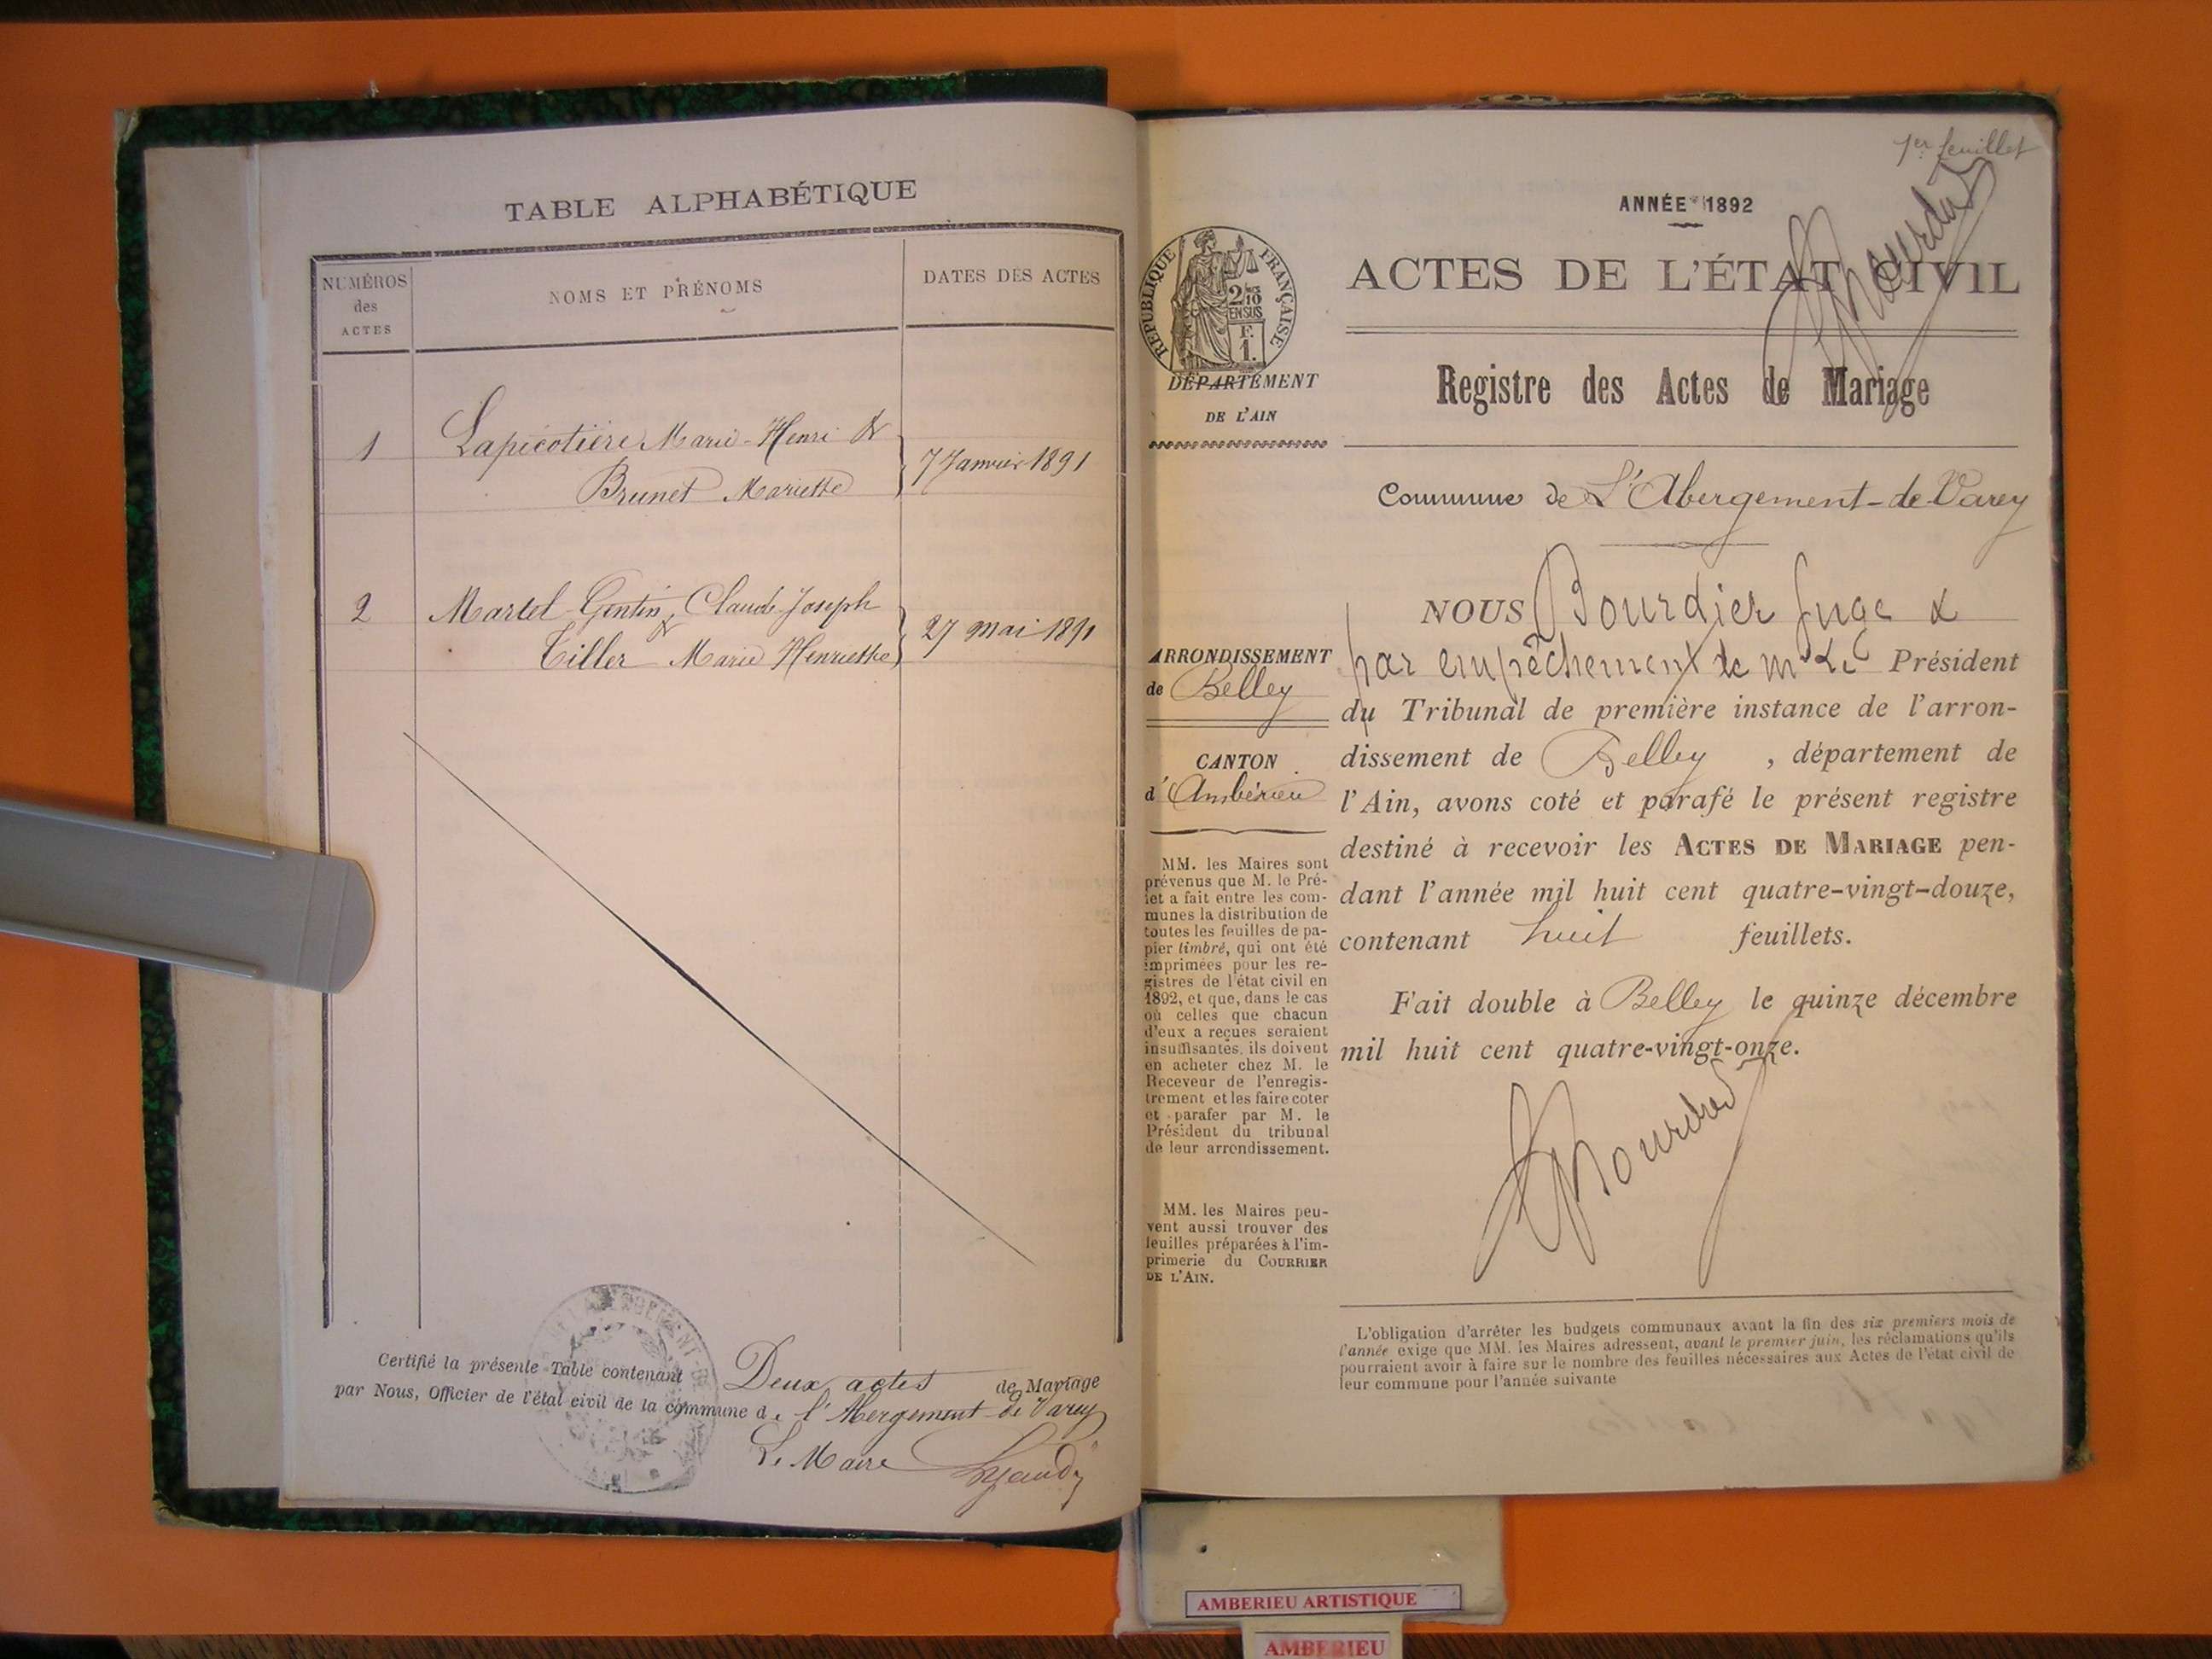 TABLE ALPHABÉTIQUE
NUMÉROS
des
ACTES
NOMS ET PRÉNOMS
DATES DES ACTES
1
Lapicotière Marie-Henri &
Brunet Mariette
7 Janvier 1891
2
Martel-Gentin, Claude-Joseph
&
Tiller Marie Henriette
27 mai 1891
Certifié la présente Table contenant Deux actes de Mariage
par Nous, Officier de l'état civil de la commune de l'Abergement-de-Varey
Le Maire
1er feuillet
ANNÉE 1892
RÉPUBLIQUE FRANÇAISE
2/10
EN SUS
F.
1.
ACTES DE L'ÉTAT CIVIL
Registre des Actes de Mariage
DÉPARTEMENT
DE L'AIN
Commune de L'Abergement-de-Varey
ARRONDISSEMENT
de Belley
CANTON
d'Ambérieu
MM. les Maires sont
prévenus que M. le Pré-
fet a fait entre les com-
munes la distribution de
toutes les feuilles de pa-
pier timbré, qui ont été
imprimées pour les re-
gistres de l'état civil en
1892, et que, dans le cas
où celles que chacun
d'eux a reçues seraient
insuffisantes, ils doivent
en acheter chez M. le
Receveur de l'enregis-
trement et les faire coter
et parafer par M. le
Président du tribunal
de leur arrondissement.
MM. les Maires peu-
vent aussi trouver des
feuilles préparées à l'im-
primerie du COURRIER
DE L'AIN.
NOUS Bourdier Juge &
par empêchement de Mr Le Président
du Tribunal de première instance de l'arron-
dissement de Belley, département de
l'Ain, avons coté et parafé le présent registre
destiné à recevoir les ACTES DE MARIAGE pen-
dant l'année mil huit cent quatre-vingt-douze,
contenant huit feuillets.
Fait double à Belley le quinze décembre
mil huit cent quatre-vingt-onze.
L'obligation d'arrêter les budgets communaux avant la fin des six premiers mois de
l'année exige que MM. les Maires adressent, avant le premier juin, les réclamations qu'ils
pourraient avoir à faire sur le nombre des feuilles nécessaires aux Actes de l'état civil de
leur commune pour l'année suivante
AMBERIEU ARTISTIQUE
AMBERIEU